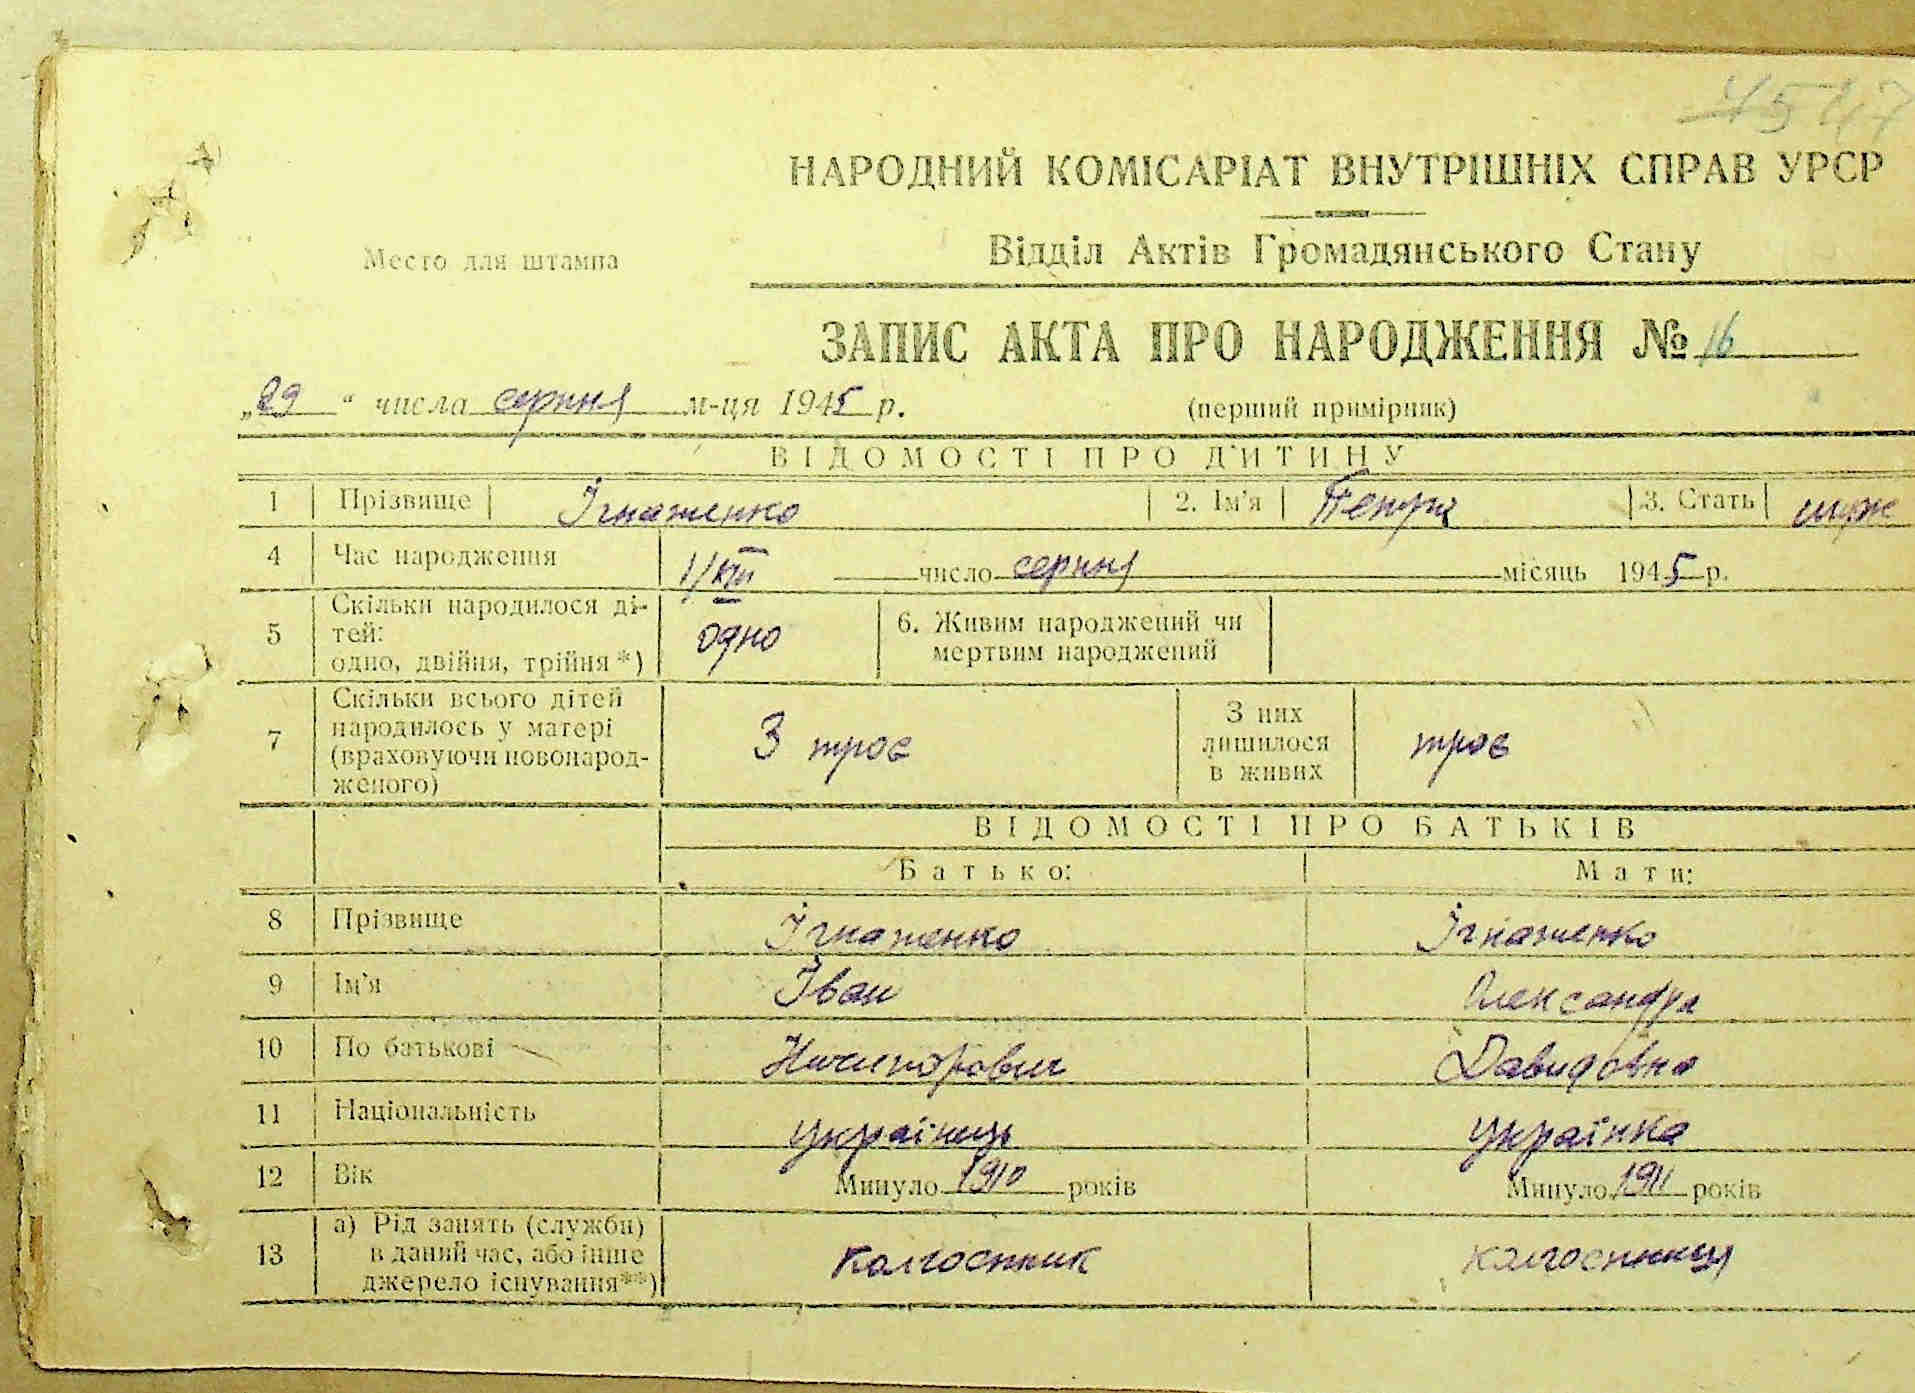 4547
НАРОДНИЙ КОМІСАРІАТ ВНУТРІШНІХ СПРАВ УРСР
Відділ Актів Громадянського Стану
Место для штампа
ЗАПИС АКТА ПРО НАРОДЖЕННЯ № 16
„29“ числа серпня м-ця 1945 р. (перший примірник)
ВІДОМОСТІ ПРО ДИТИНУ
1 Прізвище Ігнатенко 2. Ім'я Петро 3. Стать муж
4 Час народження 1/VIII число серпня місяць 1945 р.
5 Скільки народилося ді-
тей:
одно, двійня, трійня *) одно 6. Живим народжений чи
мертвим народжений
7 Скільки всього дітей
народилось у матері
(враховуючи новонарод-
женого) 3 троє З них
лишилося
в живих троє
ВІДОМОСТІ ПРО БАТЬКІВ
Батько: Мати:
8 Прізвище Ігнатенко Ігнатенко
9 Ім'я Іван Олександра
10 По батькові Ничипорович Давидовна
11 Національність українець українка
12 Вік Минуло 1910 років Минуло 1911 років
13 а) Рід занять (служби)
в даний час, або інше
джерело існування**) колгоспник колгоспниця